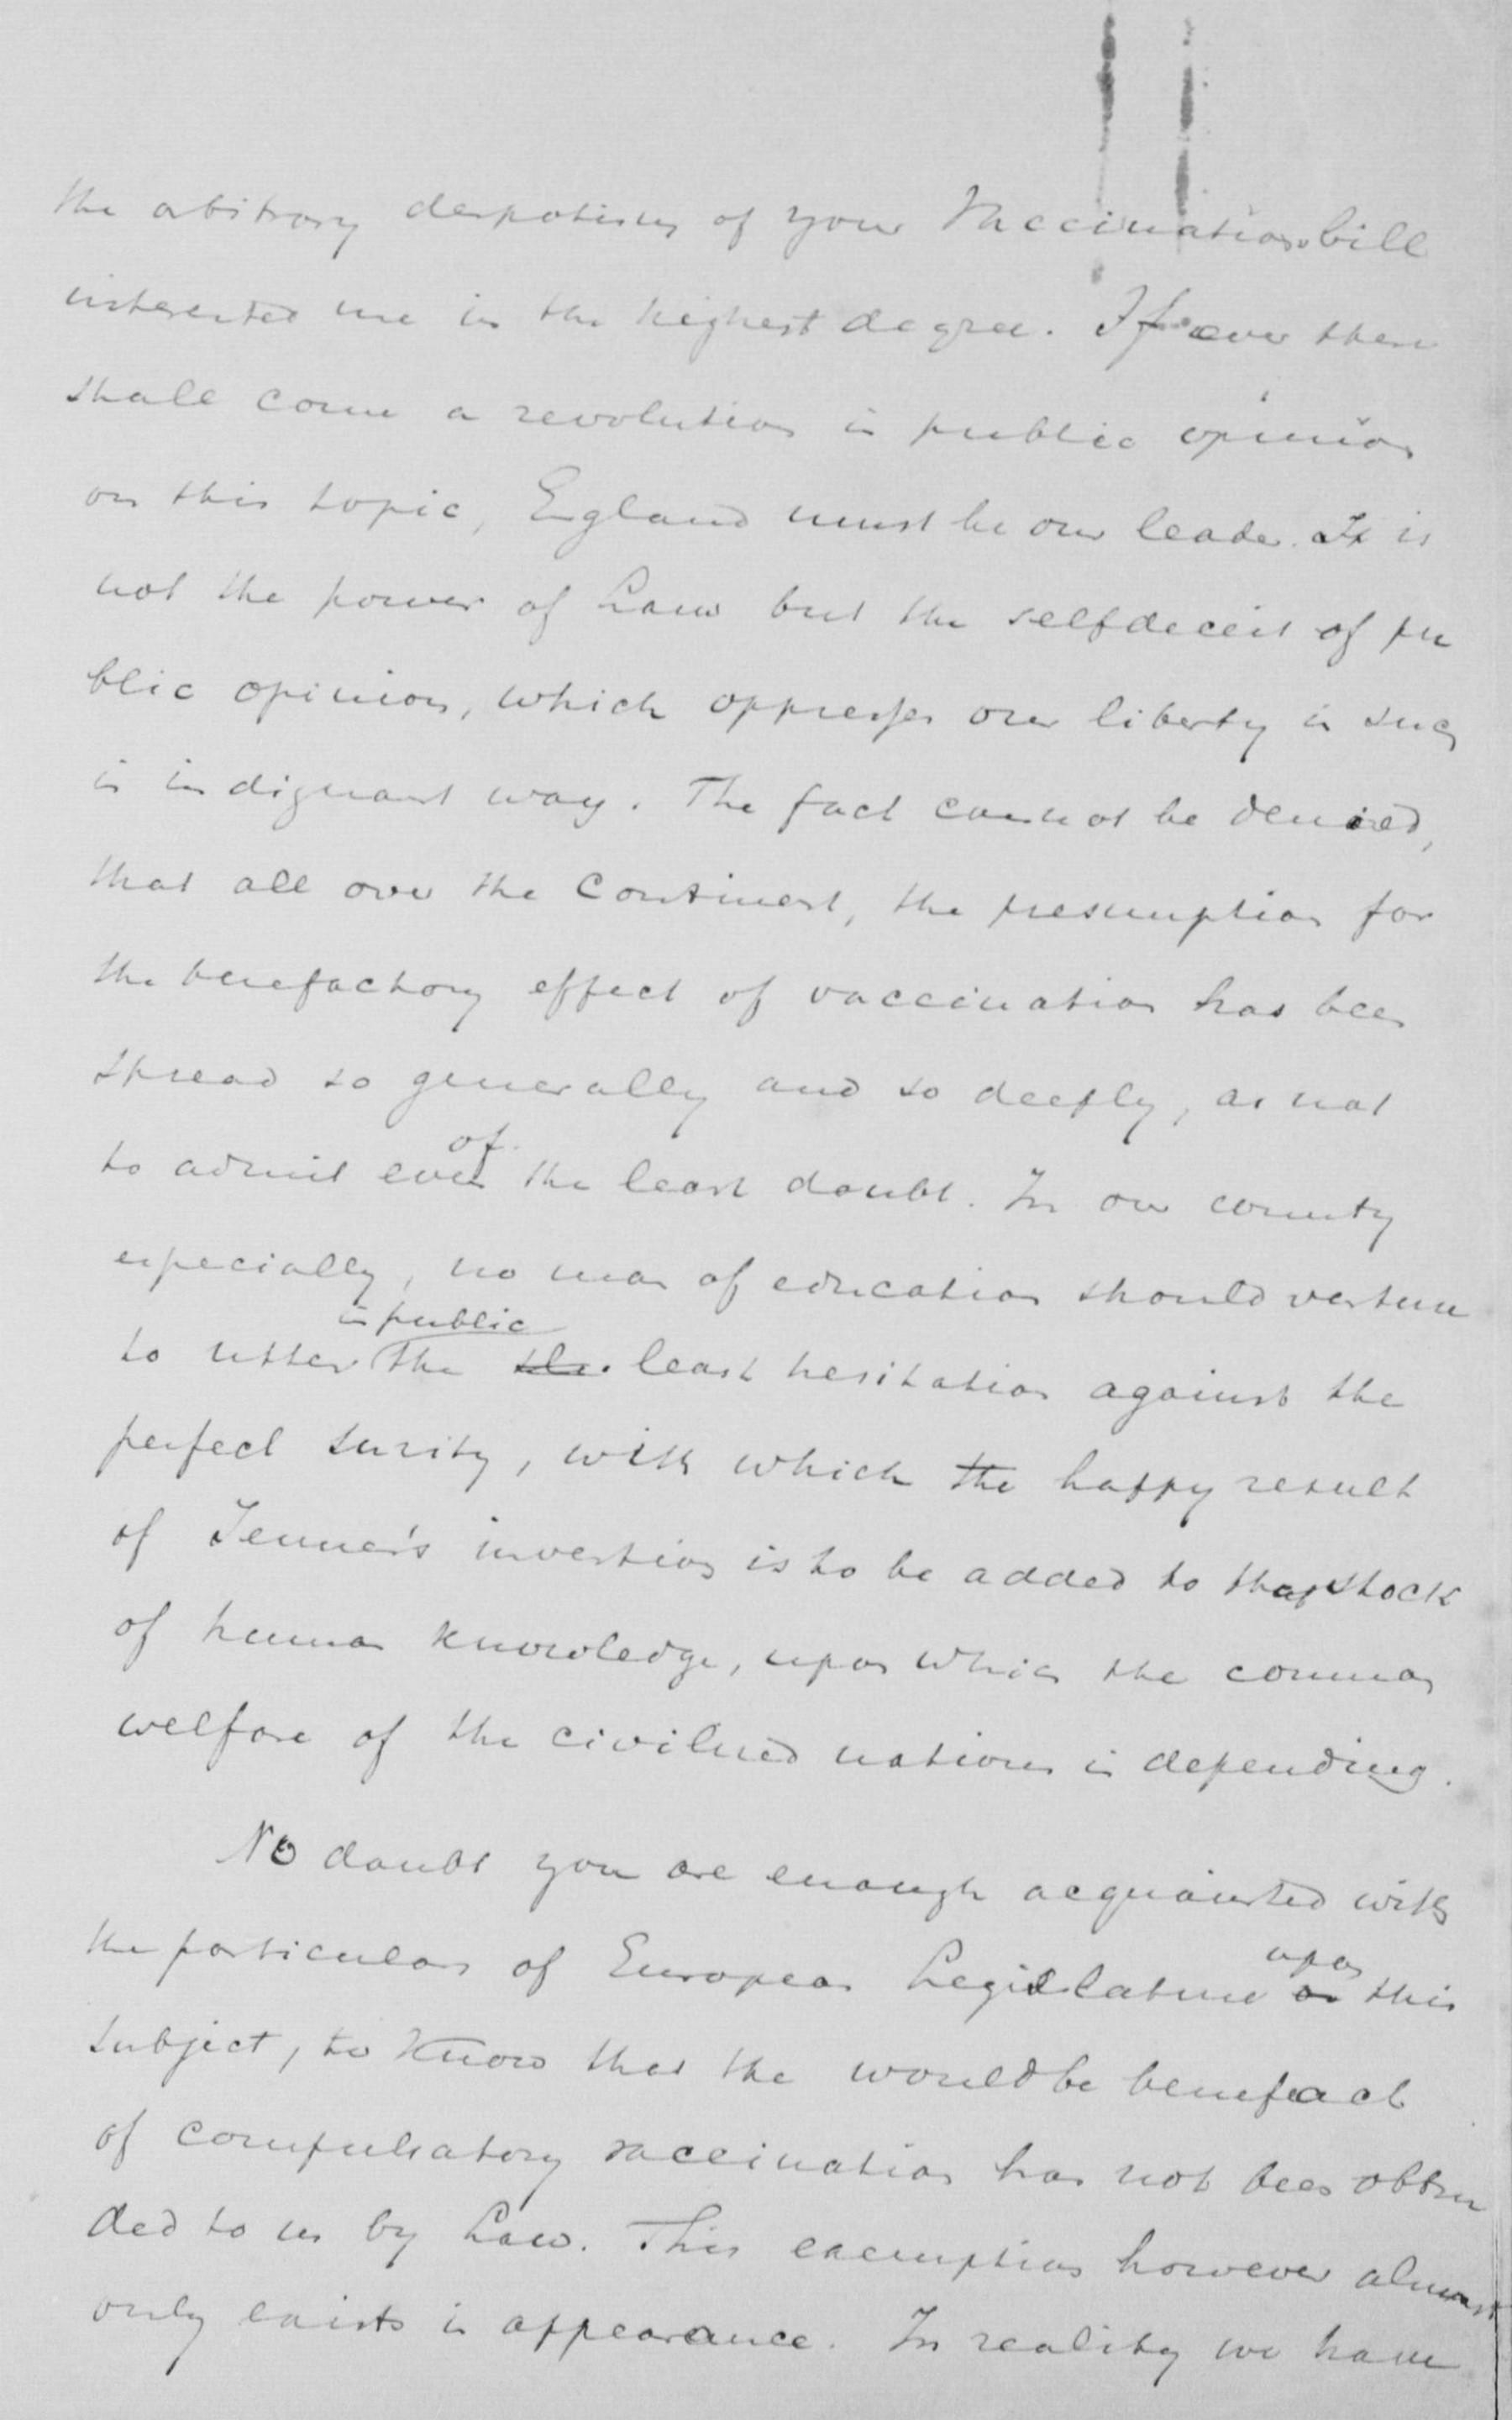 the arbitrary despotism of your Vaccination bill
interested me in the highest degree. If ever there
shall come a revolution in public opinion
on this topic, England must be our leader. It is
not the power of Law but the selfdeceit of pu
blic opinion, which oppresses our liberty in such
in indignant way. The fact cannot be denied,
that all over the Continent, the presumption for
the benefactory effect of vaccination has been
spread so generally and so deeply, as not
of
to admit even the least doubt. In our country
especially, no man of education should venture
in public
to utter the the least hesitation against the
perfect surity, with which the happy result
of Jenner's invention is to be added to that stock
of human knowledge, upon which the common
welfare of the civilised nations is depending.
No doubt you are enough acquainted with
upon
the particulars of European Legislature on this
subject, to know that the would be benefact
of compulsatory vaccination has not been obtru
ded to us by Law. This exemption however almost
only exists in appearance. In reality we have